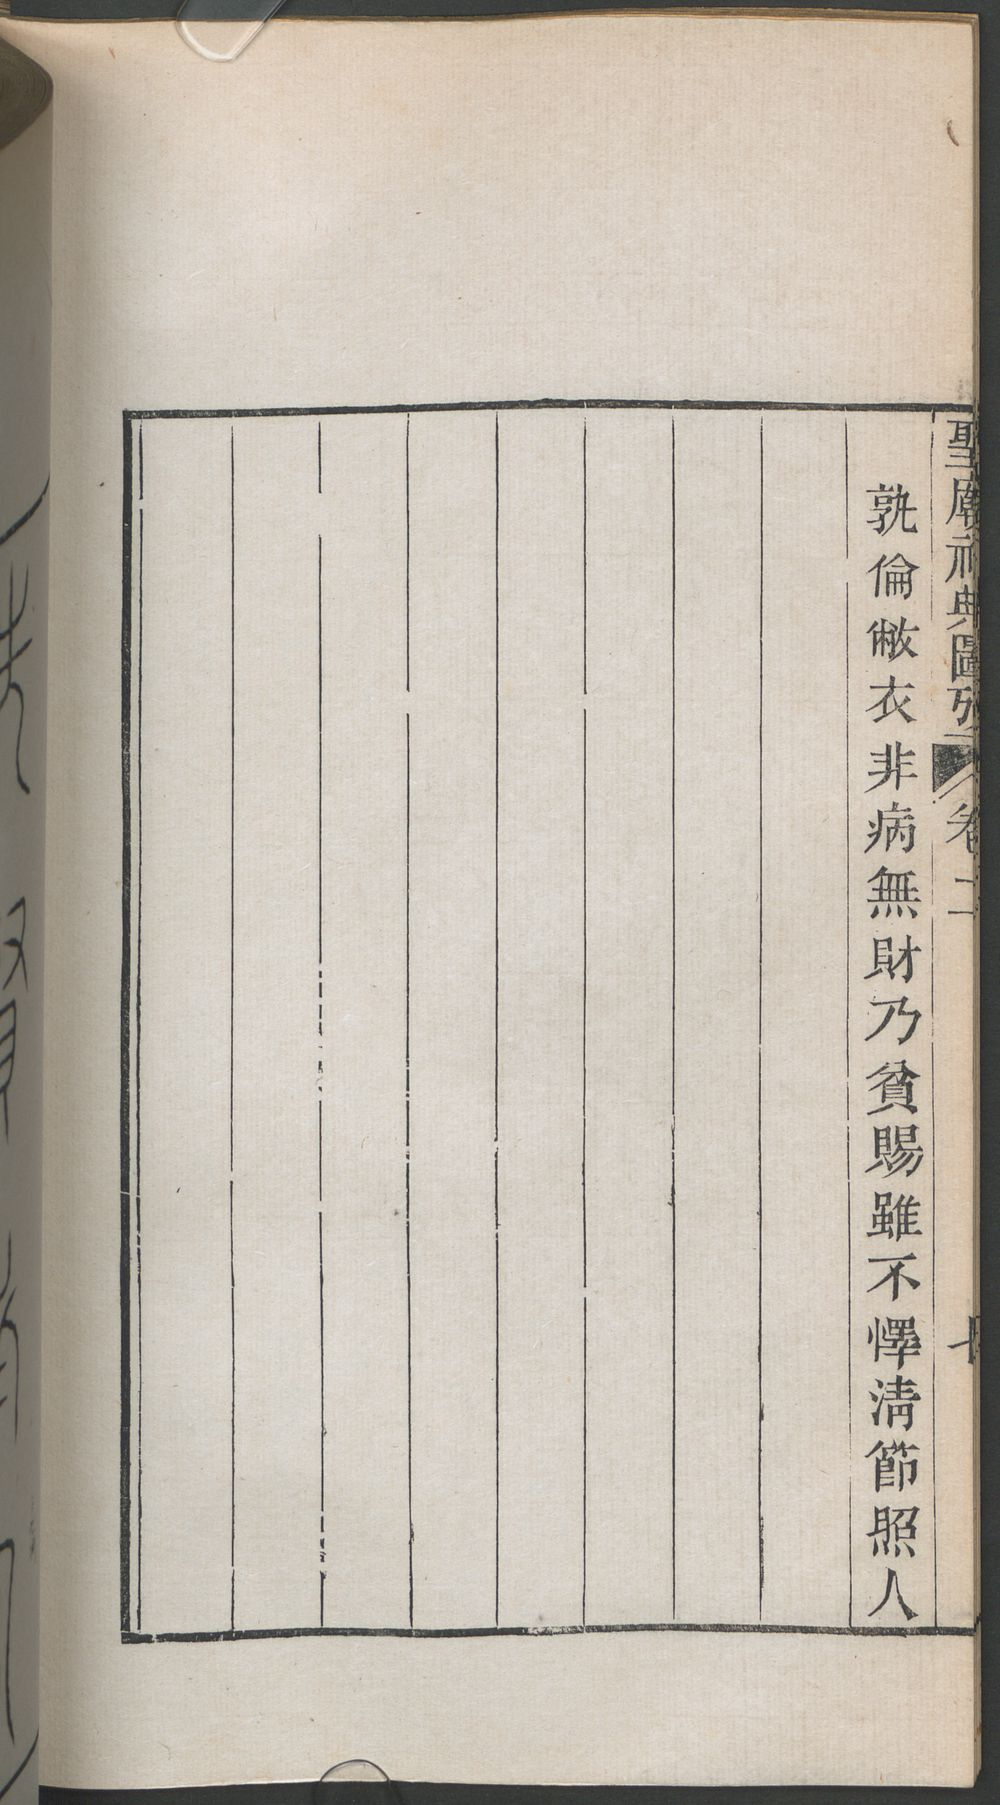 聖廟祀典圖攷
卷二
孰倫敝衣非病無財乃貧賜雖不懌清節照人